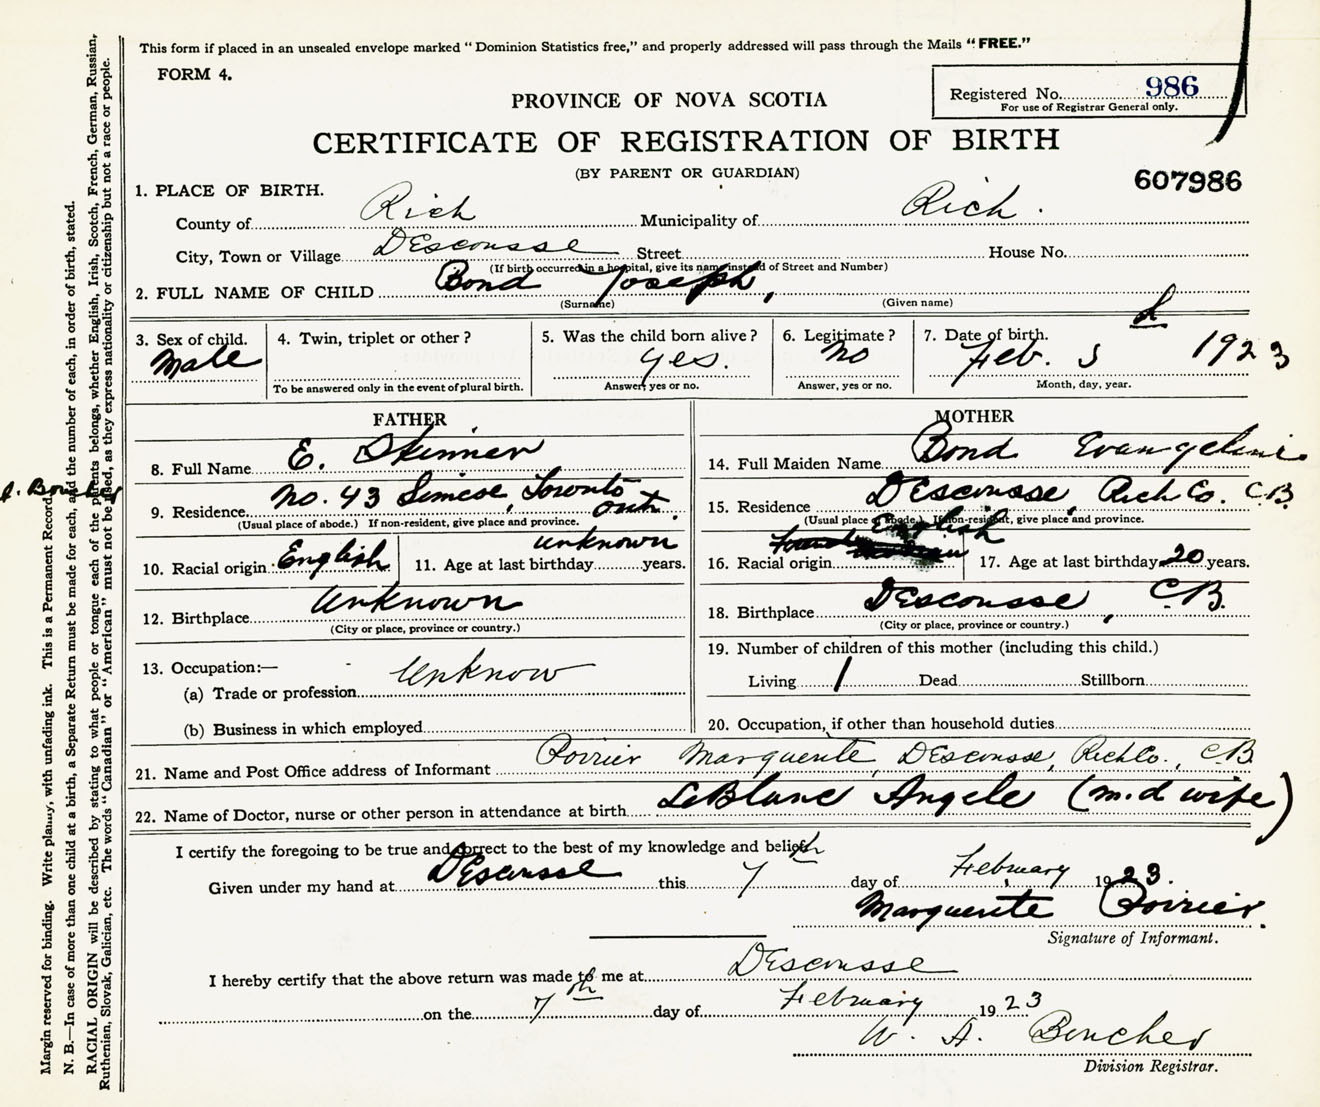 This form if placed in an unsealed envelope marked "Dominion Statistics free," and properly addressed will pass through the Mails "FREE."
FORM 4.
Registered No. 986
For use of Registrar General only.
PROVINCE OF NOVA SCOTIA
CERTIFICATE OF REGISTRATION OF BIRTH
(BY PARENT OR GUARDIAN)
607986
1. PLACE OF BIRTH.
County of Rich Municipality of Rich.
City, Town or Village DEscousse Street House No.
(If birth occurred in a hospital, give its name instead of Street and Number)
2. FULL NAME OF CHILD Bond Joseph,
(Surname) (Given name)
3. Sex of child. 4. Twin, triplet or other? 5. Was the child born alive? 6. Legitimate? 7. Date of birth.
Male yes. No Feb. 5 d 1923
To be answered only in the event of plural birth. Answer, yes or no. Answer, yes or no. Month, day, year.
FATHER MOTHER
8. Full Name E. Skinner
14. Full Maiden Name Bond Evangeline
9. Residence No. 43 Simcoe, Toronto ont.
(Usual place of abode.) If non-resident, give place and province.
15. Residence DEscousse, Rich Co. CB.
(Usual place of abode.) If non-resident, give place and province.
10. Racial origin English 11. Age at last birthday unknown years.
16. Racial origin English 17. Age at last birthday 20 years.
12. Birthplace Unknown
(City or place, province or country.)
18. Birthplace DEscousse, CB.
(City or place, province or country.)
13. Occupation:— Unknow
(a) Trade or profession
(b) Business in which employed
19. Number of children of this mother (including this child.)
Living 1 Dead Stillborn
20. Occupation, if other than household duties
21. Name and Post Office address of Informant Poirier Marguerite, DEscousse, Rich Co., CB.
22. Name of Doctor, nurse or other person in attendance at birth LeBlanc Angele (mid wife)
I certify the foregoing to be true and correct to the best of my knowledge and belief.
Given under my hand at DEscousse this 7th day of February 1923.
Marguerite Poirier.
Signature of Informant.
I hereby certify that the above return was made to me at DEscousse
on the 7th day of February 1923
W. A. Boucher
Division Registrar.
Margin reserved for binding. Write plainly, with unfading ink. This is a Permanent Record.
N. B.—In case of more than one child at a birth, a Separate Return must be made for each, and the number of each, in order of birth, stated.
RACIAL ORIGIN will be described by stating to what people or tongue each of the parents belongs, whether English, Irish, Scotch, French, German, Russian,
Ruthenian, Slovak, Galician, etc. The words "Canadian" or "American" must not be used, as they express nationality or citizenship but not a race or people.